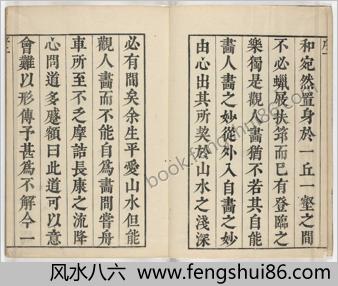 和宛然置身於一丘一壑之間
不必蠟屐扶筇而已有登臨之
樂獨是觀人畵猶不若其自能
畵人畵之妙從外入自畵之妙
由心出其所契於山水之淺深
必有間矣余生平愛山水但能
觀人畵而不能自爲畵間嘗舟
車所至不乏摩詰長康之流降
心問道多蹙額曰此道可以意
會難以形傳予甚爲不解今一
book.fengshui86.com
风水八六 www.fengshui86.com